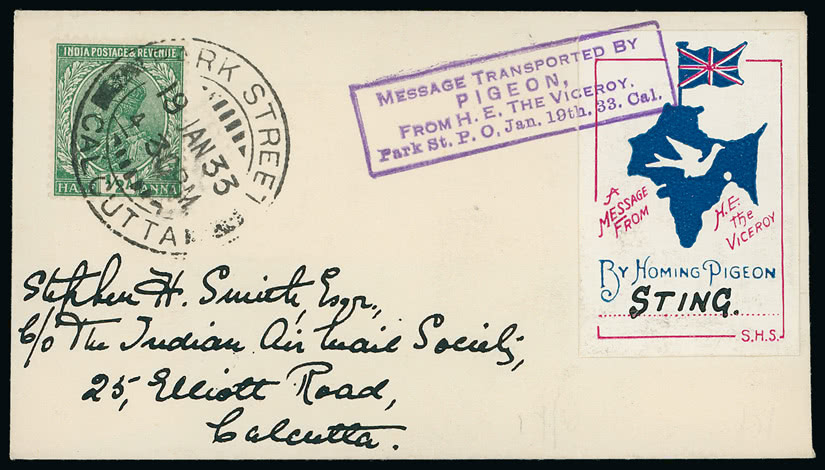 INDIA POSTAGE & REVENUE
HALF ½ ANNA
PARK STREET
19 JAN 33
4 30PM
CALCUTTA
MESSAGE TRANSPORTED BY
PIGEON,
FROM H. E. THE VICEROY.
Park St. P. O. Jan. 19th. 33. Cal.
A
MESSAGE
FROM
H.E.
the
VICEROY
BY HOMING PIGEON
STING.
S.H.S.
Stephen H. Smith, Esqr.,
C/o The Indian Air Mail Society,
25, Elliott Road,
Calcutta.